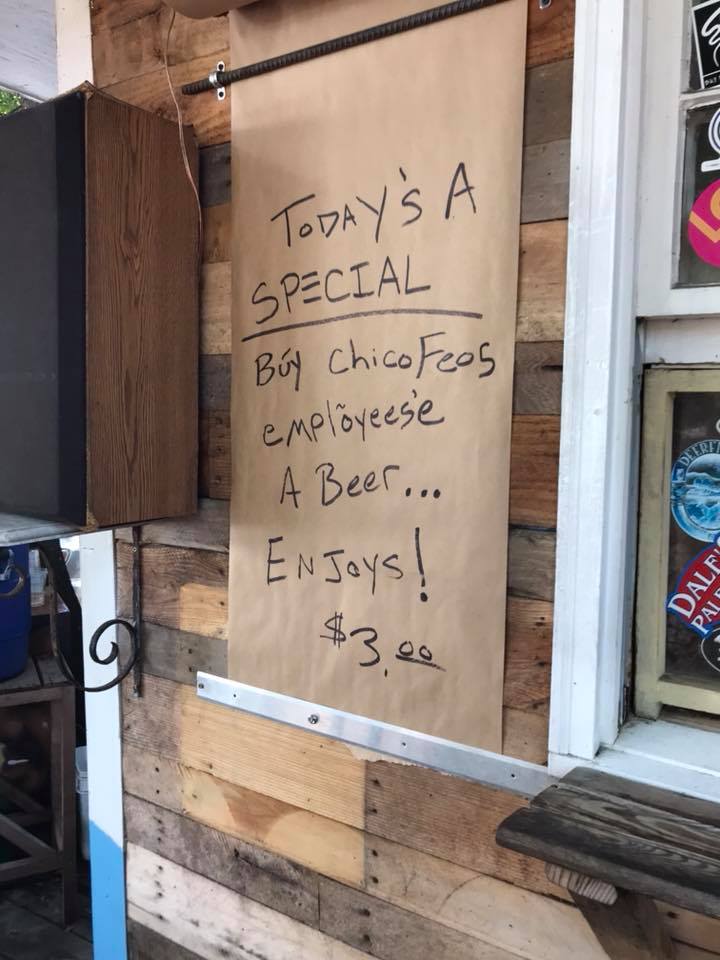 TODAY'S A
SPECIAL
BÚY ChicoFeos
emplõyeese'e
A Beer...
ENJOYS!
$3.00
DEERFI
DALE'S
PALE